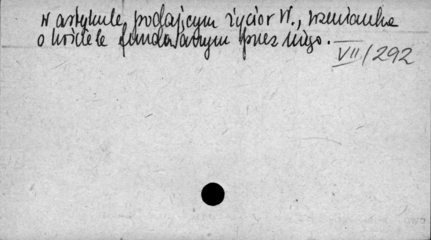 W artykule, podającym życior W., wzmianka
o kościele fundowanym przez niego.
VII/292